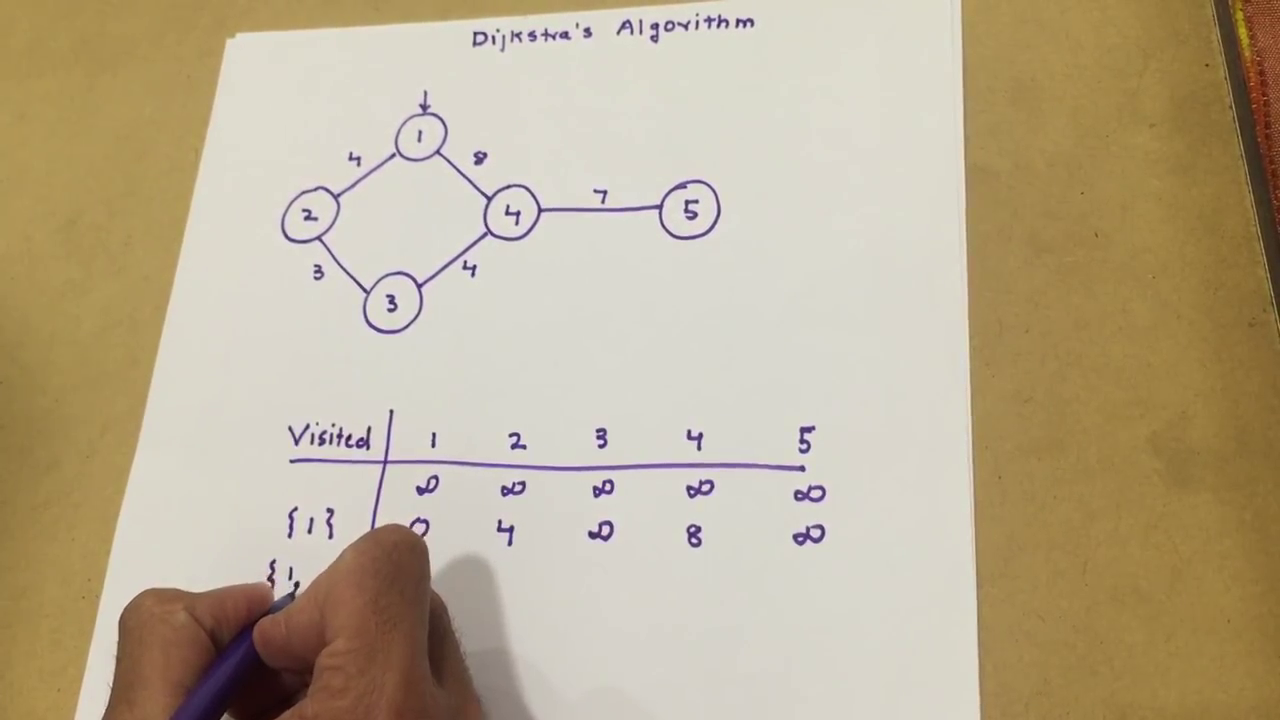 Dijkstra's Algorithm
1
4 8
2 4 7 5
3 4
3
Visited 1 2 3 4 5
∞ ∞ ∞ ∞ ∞
{1} 0 4 ∞ 8 ∞
{1,